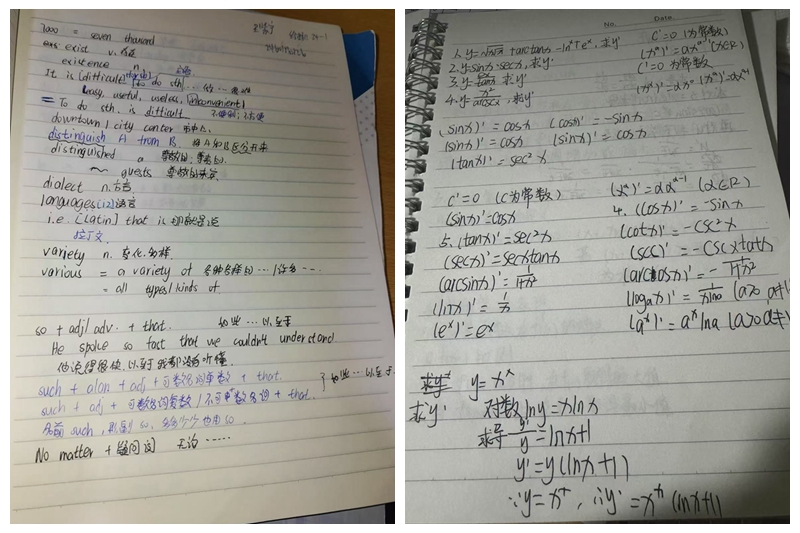 7000 = seven thousand
exist v. 存在
existence n.
It is (difficult) to do sth. ...做...很难
(easy, useful, useless, inconvenient)
= To do sth. is difficult
downtown / city center 市中心
distinguish A from B. 将A和B区分开来
distinguished a 尊敬的;尊贵的.
~ guests 尊敬的来宾
dialect n. 方言
languages [12] 语言
i.e. [Latin] that is 也就是说
拉丁文.
variety n. 变化, 多样.
various = a variety of 各种各样的…/许多…
= all types/kinds of
so + adj/adv. + that. 如此…以至于
He spoke so fast that we couldn't understand
他说得很快,以至于我都没有听懂.
such + a/an + adj + 可数名词单数 + that.
such + adj + 可数名词复数/不可数名词 + that. } 如此…以至于
名前such,形副so,多多少少也用so.
No matter + 疑问词 无论……
No. Date
+ arctanx - lnx + e^x, 求y'
2. y=sinx·secx, 求y'
3. y= 求y'
4. y= 求y'
C'=0 (为常数)
(x^α)'=αx^(α-1) (α∈R)
C'=0 为常数
(sinx)'=cosx (cosx)'=-sinx
(sinx)'=cosx (sinx)'=cosx
(tanx)'=sec²x
C'=0 (C为常数) (x^α)'=αx^(α-1) (α∈R)
(sinx)'=cosx 4. (cosx)'=-sinx
5. (tanx)'=sec²x (cotx)'=-csc²x
(secx)'=secxtanx
(arcsinx)'= (arccosx)'=-
(lnx)'=1/x (logax)'=1/xlna (a>0, a≠1)
(e^x)'=e^x (a^x)'=a^x lna (a>0, a≠1)
求y' y=x^x
求y' 对数 lny=xlnx
求导 y'/y=lnx+1
y'=y(lnx+1)
∵y=x^x, ∴y'=x^x(lnx+1)